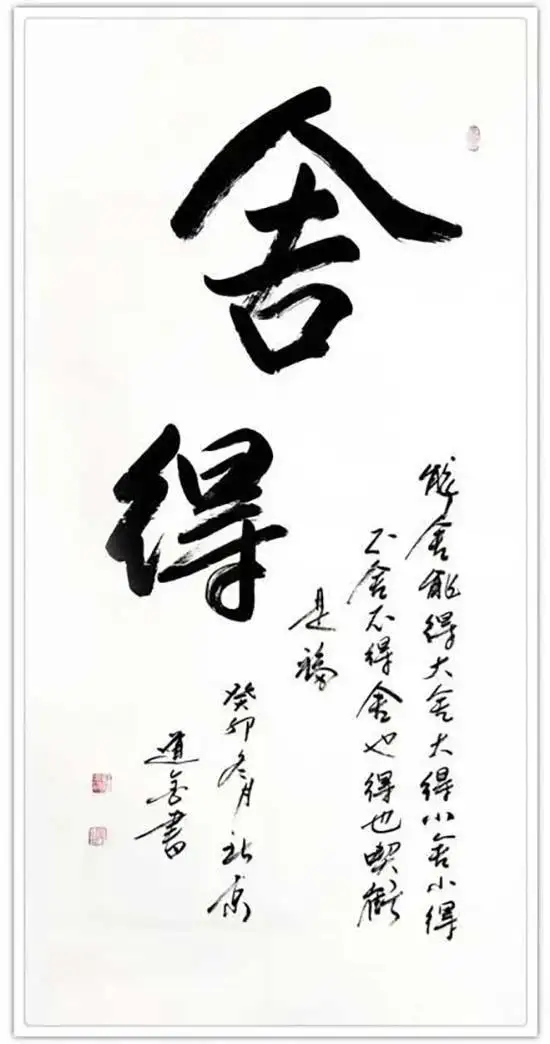 舍
得
能舍能得大舍大得小舍小得
不舍不得舍也得也喫虧
是福
癸卯冬月北京
道金書